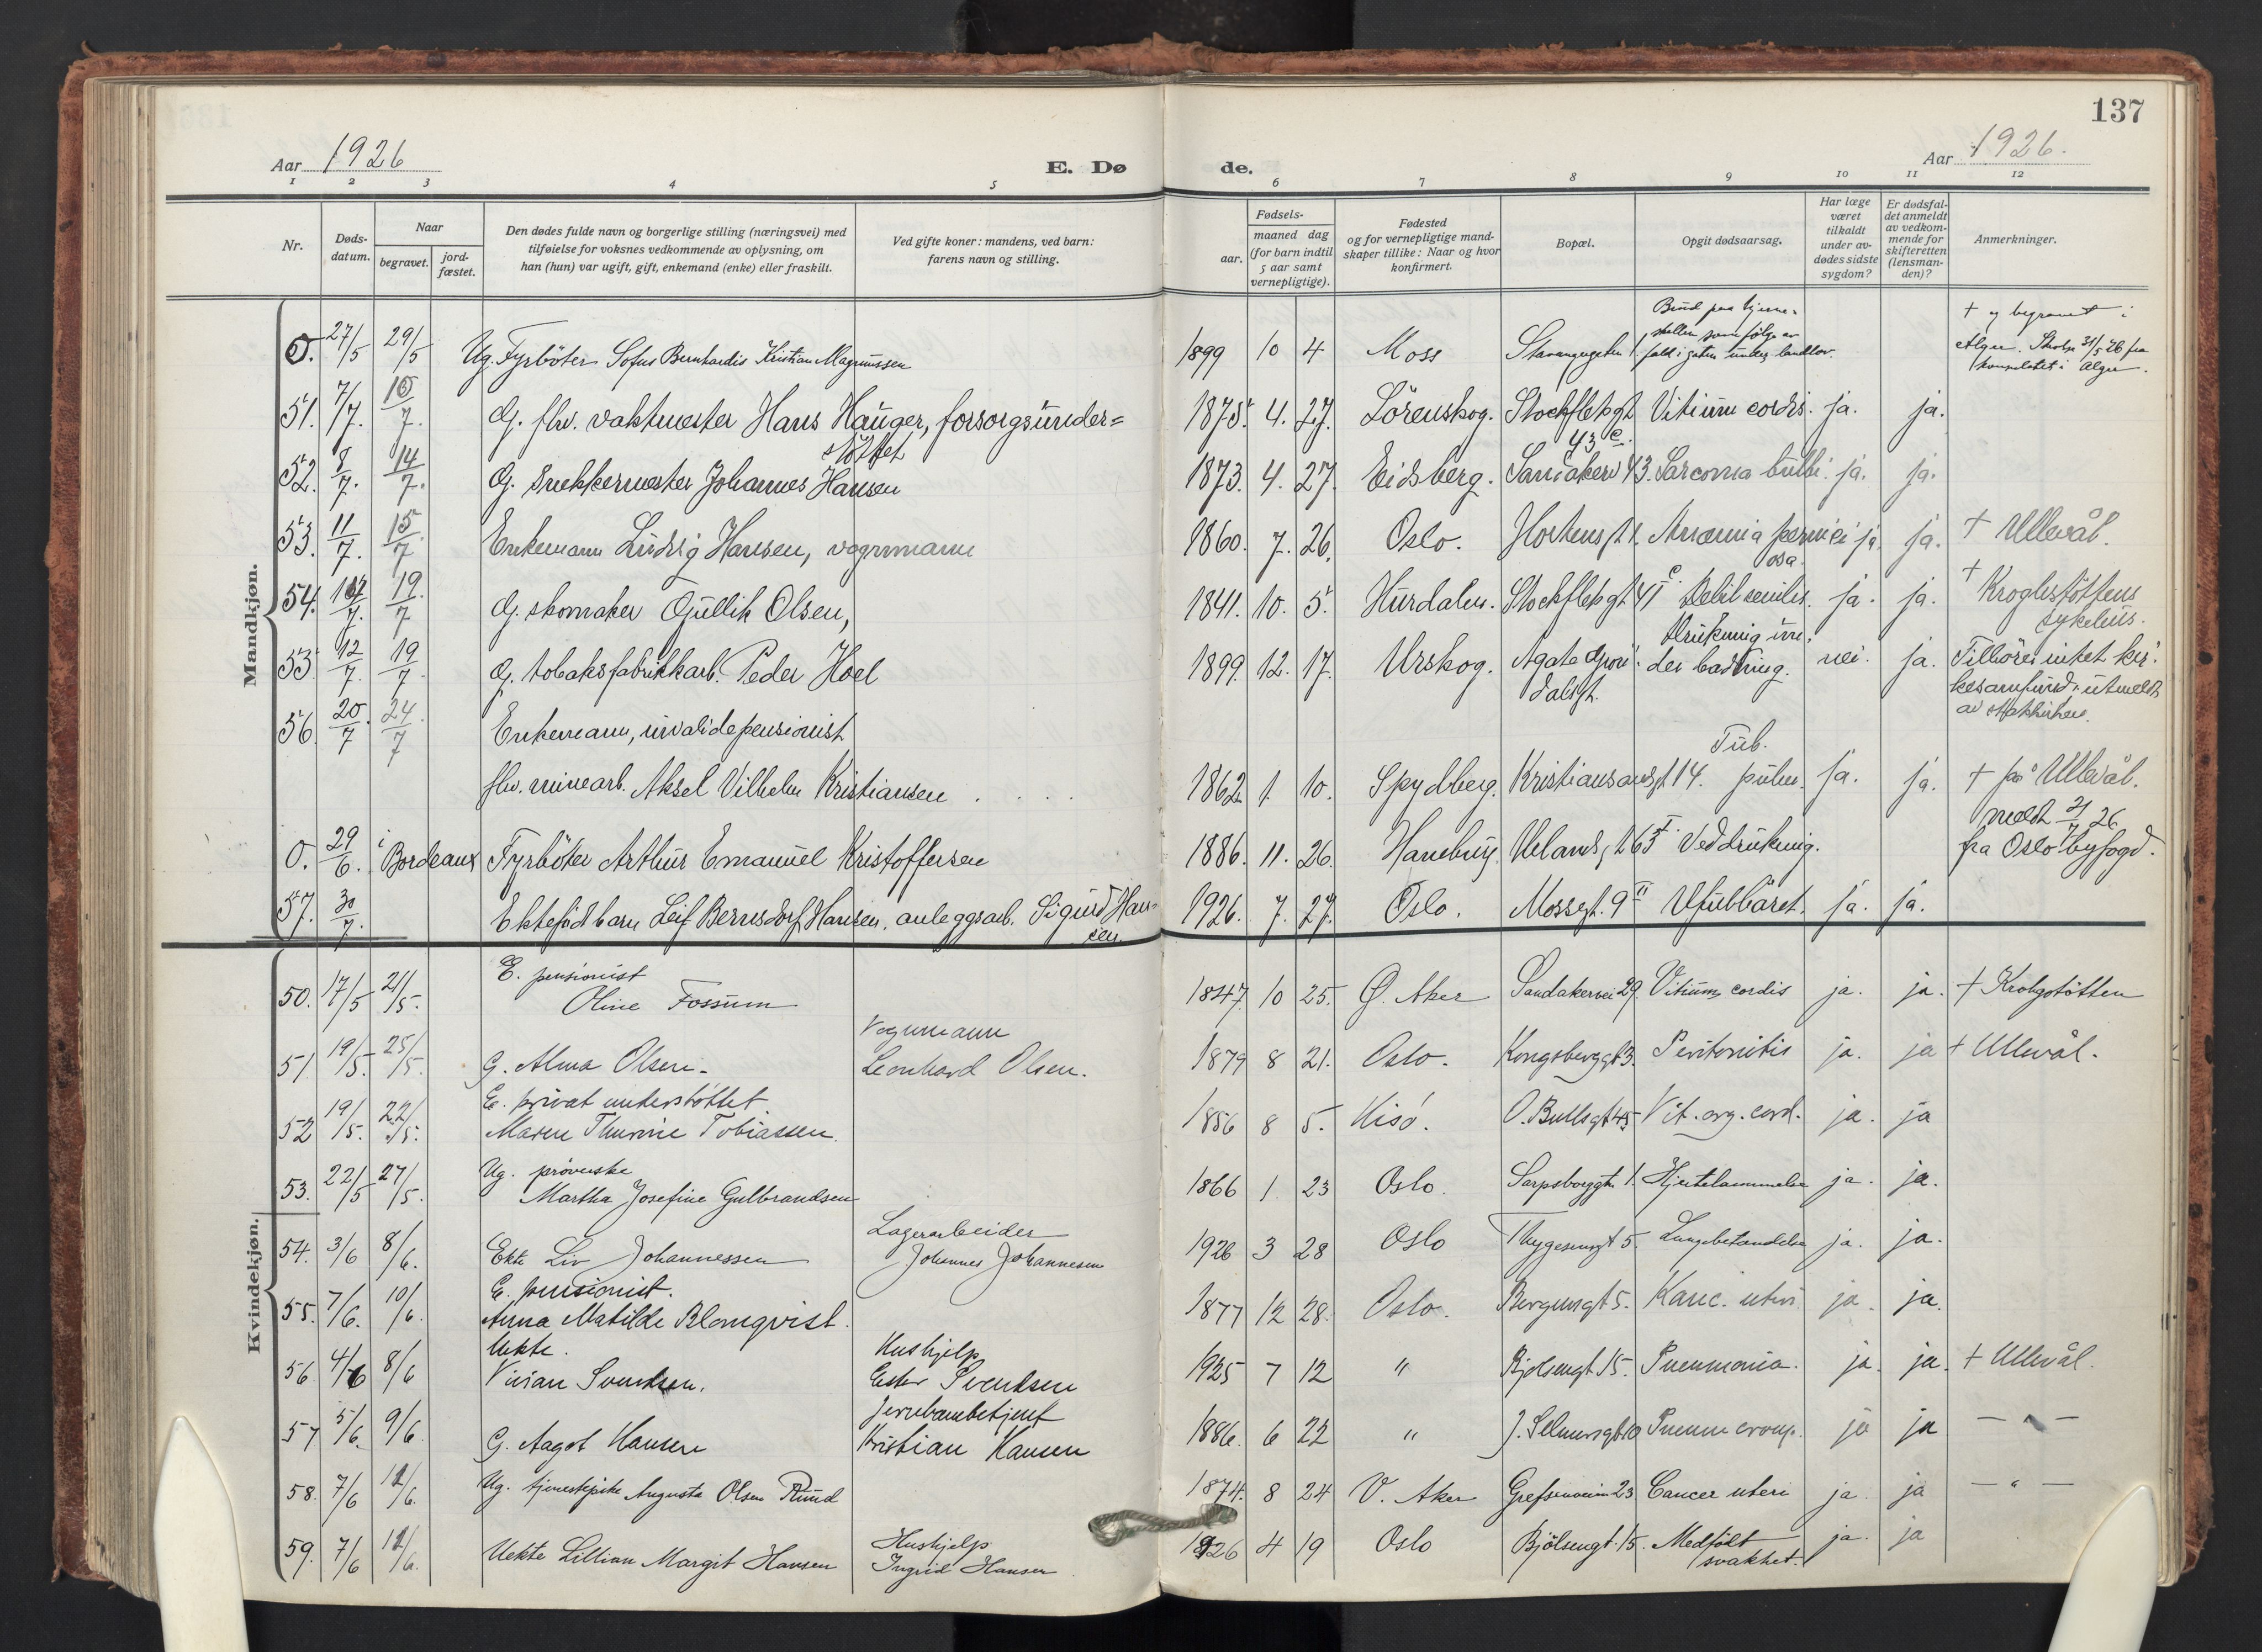 137
Aar 1926
E. Dø
de.
Aar 1926.
1 2 3 4 5 6 7 8 9 10 11 12
Nr.
Døds-datum.
Naar
begravet.
jord-fæstet.
Den dødes fulde navn og borgerlige stilling (næringsvei) med
tilføielse for voksnes vedkommende av oplysning, om
han (hun) var ugift, gift, enkemand (enke) eller fraskilt.
Ved gifte koner: mandens, ved barn:
farens navn og stilling.
Fødsels-
aar.
maaned dag
(for barn indtil
5 aar samt
vernepligtige).
Fødested
og for vernepligtige mand-
skaper tillike: Naar og hvor
konfirmert.
Bopæl.
Opgit dødsaarsag.
Har læge
været
tilkaldt
under av-
dødes sidste
sygdom?
Er dødsfal-
det anmeldt
av vedkom-
mende for
skifteretten
(lensman-
den)?
Anmerkninger.
Mandkjøn.
0. 27/5 29/5 Ug. Fyrböter Sofus Bernhardis Kristian Magnussen 1899 10 4 Moss Stavangergaten 1 Brud paa hjerne-
skallen som følge av
fald i gaten under landlov.
+ og begravet i
Alger. Skolp 31/5 26 fra
konsulatet i Alger.
51. 7/7. 10/7. G. fhv. vaktmester Hans Hauger, forsorgsunder=
støttet 1875. 4. 27. Lörenskog. Stockfletsgt 43 e. Vitium cordis. ja. ja.
52. 8/7. 14/7. G. snekkermester Johannes Hansen 1873. 4. 27. Eidsberg. Sandakerv 43. Sarcoma bulbi. ja. ja.
53. 11/7. 15/7 Enkemann Ludvig Hansen, vognmann 1860. 7. 26. Oslo. Hortensgt 1. Anæmia perniciosa ja. ja. + Ullevål.
54. 14/7. 19./7 G. skomaker Gullik Olsen, 1841. 10. 5. Hurdalen. Stockfletsgt 41 c. Debil. senilis. ja. ja. + Kroghstöttens
sykehus.
55. 12/7. 19/7. G. tobaksfabrikkarb. Peder Hoel 1899. 12. 17. Urskog. Agate Grön-
dalsgt. Drukning un-
der badning. nei. ja. Tilhörer intet kir-
kesamfund, utmeldt
av statskirken.
56. 20/7. 24/7. Enkemann, invalidepensionist
fhv. minearb. Aksel Vilhelm Kristiansen . . . . 1862. 1. 10. Spydberg. Kristiansandsgt 14. Tub.
pulm. ja. ja. + på Ullevål.
0. 29/6. i Bordeaux Fyrböter Arthur Emanuel Kristoffersen 1886. 11. 26. Hamburg. Uelandsgt 63 I. Ved drukning. meldt 2/7 26
fra Oslo byfogd.
57. 30/7. Ektefödt barn Leif Bernsdorf Hansen. anleggsarb. Sigurd Han-
sen. 1926. 7. 27. Oslo. Mossegt. 9 II Ufullbåret. ja. ja.
Kvindekjøn.
50. 17/5 21/5. E. pensionist
Oline Fossum 1847. 10 25. Ø. Aker Sandakervei 29. Vitium cordis ja. ja. + Krohgstötten
51 19/5. 25/5. G. Alma Olsen. Vognmann
Leonhard Olsen. 1879 8 21. Oslo. Kongsberggt 3. Peritonitis ja. ja + Ullevål.
52 19/5. 22/5. E. privat understöttet
Maren Thurine Tobiassen. 1856 8 5. Kisö. O. Bullsgt 45 Vit. org. cord. ja. ja
53. 22/5 27/5. Ug. pröverske
Martha Josefine Gulbrandsen 1866 1. 23 Oslo. Sarpsborggt. 1. Hjertelammelse ja. ja.
54. 3/6 8/6. Ekte Liv Johannessen Lagerarbeider
Johannes Johannesen 1926 3 28 Oslo Thygesensgt 5. Lungebetændelse ja. ja.
55. 7/6. 10/6. E. pensionist.
Anna Matilde Blomqvist. 1877 12 28. Oslo. Bergensgt 5. Kanc. uteri ja. ja.
56. 4/6 8/6 Uekte.
Vivian Svendsen. Hushjelp
Ester Svendsen 1925 7 12 " Bjölsengt 15. Pneumonia. ja. ja. + Ullevål.
57 5/6. 9/6. G. Aagot Hansen Jernbanebetjent
Kristian Hansen 1886. 6 22 " J. Selmersgt 10 Pneum. croup. ja ja — " —
58. 7/6 11/6. Ug. tjenestepike Augusta Olsen Rud 1874. 8 24 V. Aker Grefsenveien 23 Cancer uteri ja ja — " —
59. 7/6 11/6. Uekte Lillian Margit Hansen Hushjelp
Ingrid Hansen 1926 4 19 Oslo Bjölsengt. 15. Medfödt
svakhet. ja. ja